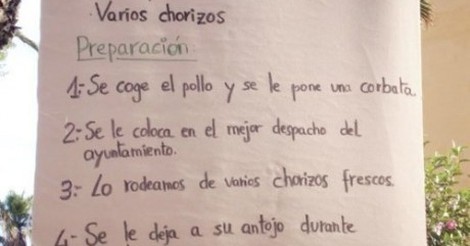 · Varios chorizos
Preparación
1:- Se coge el pollo y se le pone una corbata.
2:- Se le coloca en el mejor despacho del
ayuntamiento.
3:- Lo rodeamos de varios chorizos frescos.
4- Se le deja a su antojo durante